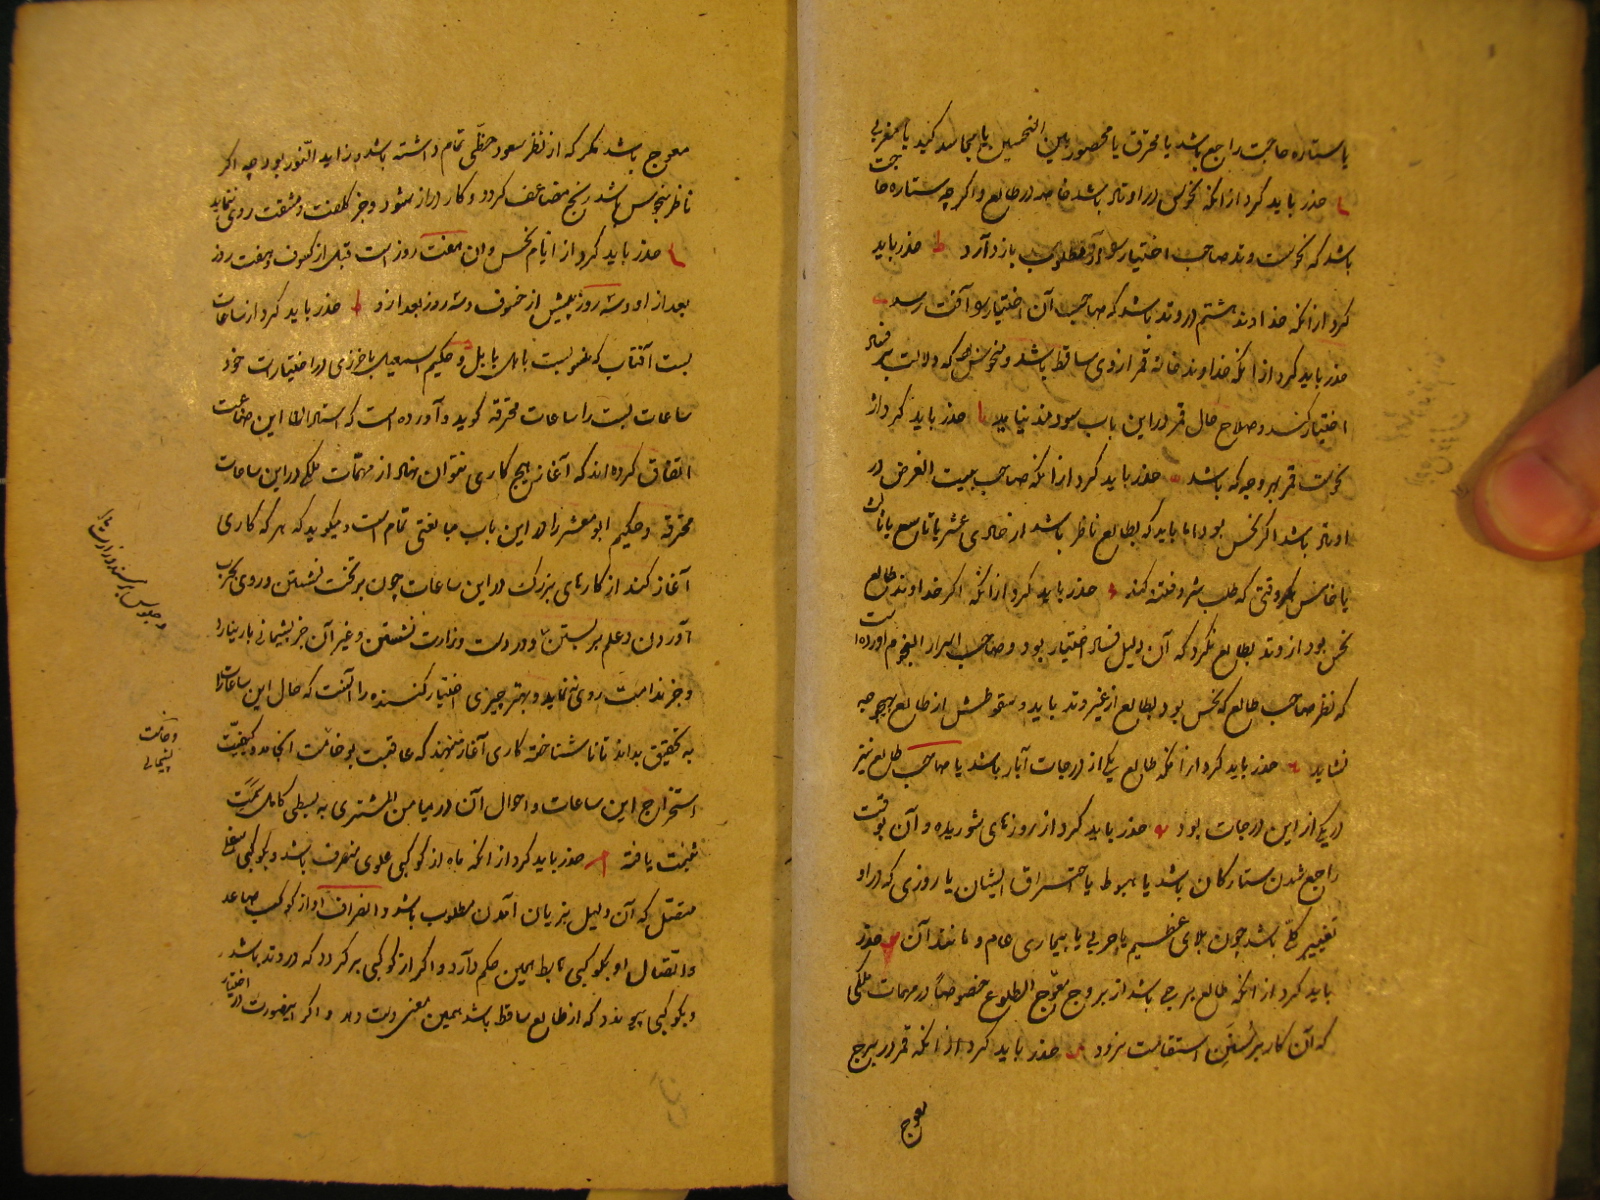 یا ستاره حاجت راجع باشد یا محترق یا محصور بین النحسین یا مجاسد کید یا مغربی
حذر باید کرد از انکه نحوس در اوتاد باشد خاصه در طالع و اکرچه ستاره حاجت
باشد که نحوست وتد صاحب اختیار را از مطلوب باز دارد حذر باید
کرد از انکه خداوند هشتم در وتد باشد که صاحب آن اختیار را آفت رسد
حذر باید کرد از انکه خداوند خانهٔ قمر از وی ساقط باشد و منحوس که دلالت بر فساد
اختیار کند و صلاح حال قمر در این باب سودمند نیاید حذر باید کرد از
نحوست قمر بهر وجه که باشد حذر باید کرد از انکه صاحب بیت الغرض در
اوتاد باشد اکر نحس بود اما باید که بطالع ناظر باشد از حادی عشر یا تاسع یا ثالث
یا خامس مکر وقتی که طلب شر و فتنه کند حذر باید کرد از انکه اکر خداوند طالع
نحس بود از وتد بطالع نکرد که آن دلیل فساد اختیار بود و صاحب اسرار النجوم آورده است
که نظر صاحب طالع که نحس بود بطالع از غیر وتد باید و سقوطش از طالع بهیچ وجه
نشاید حذر باید کرد از انکه طالع یکی از درجات آبار باشد یا صاحب طالع نیز
در یکی از این درجات بود حذر باید کرد از روزهای شوریده و آن بوقت
راجع شدن ستارکان باشد یا هبوط یا احتراق ایشان یا روزی که در او
تغییر کلی باشد چون بلای عظیم یا حربی یا بیماری عام و مانند آن حذر
باید کرد از انکه طالع برجی باشد از بروج معوّج الطلوع خصوصاً در مهمات ملکی
که آن کار بر سنن استقامت نرود حذر باید کرد از انکه قمر در برج
معوج
معوج باشد مکر که از نظر سعود حظّی تمام داشته باشد و زاید النّور بود چه اکر
ناظر بنحوس باشد رنج مضاعف کردد و کار دراز شود و جز کلفت و مشقت روی ننماید
حذر باید کرد از ایّام نحس و ان هفت روز است قبل از کسوف و هفت روز
بعد از او و سه روز پیش از خسوف و سه روز بعد از و حذر باید کرد از ساعات
بست آفتاب که منسوبست باهل بابل و حکیم اسمعیل باخرزی در اختیارات خود
ساعات بست را ساعات محترقه کوید و آورده است که استادان این صناعت
اتفاق کرده‌اند که آغاز هیچ کاری نتوان نهاد از مهمّات ملکی در این ساعات
محترقه و حکیم ابو معشر را در این باب مبالغتی تمام است و میکوید که هر که کاری
آغاز کند از کارهای بزرک در این ساعات چون بر تخت نشستن و روی بحرب
آوردن و علم بر بستن و در دست وزارت نشستن و غیر آن جز پشیمانی بار نیارد
و جز ندامت روی ننماید و بهتر چیزی اختیار کننده را آنست که حال این ساعات را
به تحقیق بداند تا ناشناخته کاری آغاز ننهد که عاقبت بوخامت انجامد و کیفیّت
استخراج این ساعات و احوال آن در میامن المشتری به بسطی کامل سمت
ثبت یافته حذر باید کرد از انکه ماه از کوکبی علوی منصرف باشد و بکوکبی سفلی
متصل که آن دلیل بزیان آمدن مطلوب باشد و انصراف او از کوکب صاعد
و اتصال او بکوکبی هابط همین حکم دارد و اکر از کوکبی بر کردد که در وتد باشد
و بکوکبی پیوندد که از طالع ساقط باشد همین معنی دست دهد و اکر اینصورت در اختیار
و جلوس بر مسند وزارت
وخامت
پشیمانی